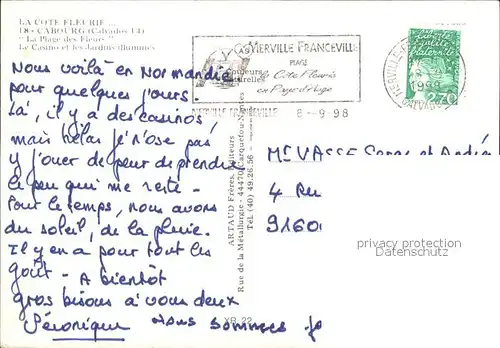 LA COTE FLEURIE ...
18 - CABOURG (Calvados 14)
"La Plage des Fleurs"
Le Casino et les Jardins illuminés
MERVILLE FRANCEVILLE
PLAGE
la Côte Fleurie
en Pays d'Auge
MERVILLE FRANCEVILLE 8-9-98
Liberté
égalité
fraternité
2,70
Nous voilà en Normandie
pour quelques jours.
Là, il y a des casinos,
mais hélas je n'ose pas
y jouer de peur de perdre
le peu qui me reste -
Pour le temps, nous avons
du soleil, de la pluie.
Il y en a pour tout les
goût - A bientôt
gros bisous à vous deux
Véronique nous sommes
ARTAUD Frères, Éditeurs
Rue de la Métallurgie - 44470 Carquefou-Nantes
Tél. (40) 49.28.56
XB 22
VASSE et
4 Ru
9160
privacy protection
Datenschutz